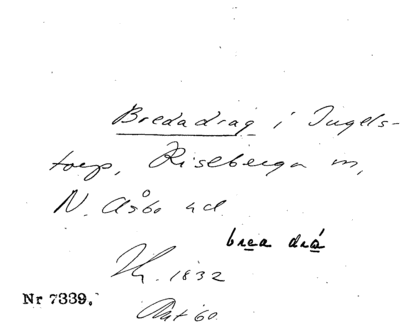 Bredadrag i Ingels-
torp, Riseberga sn,
N. Åsbo hd.
brea drá
1832
Nr 7339.